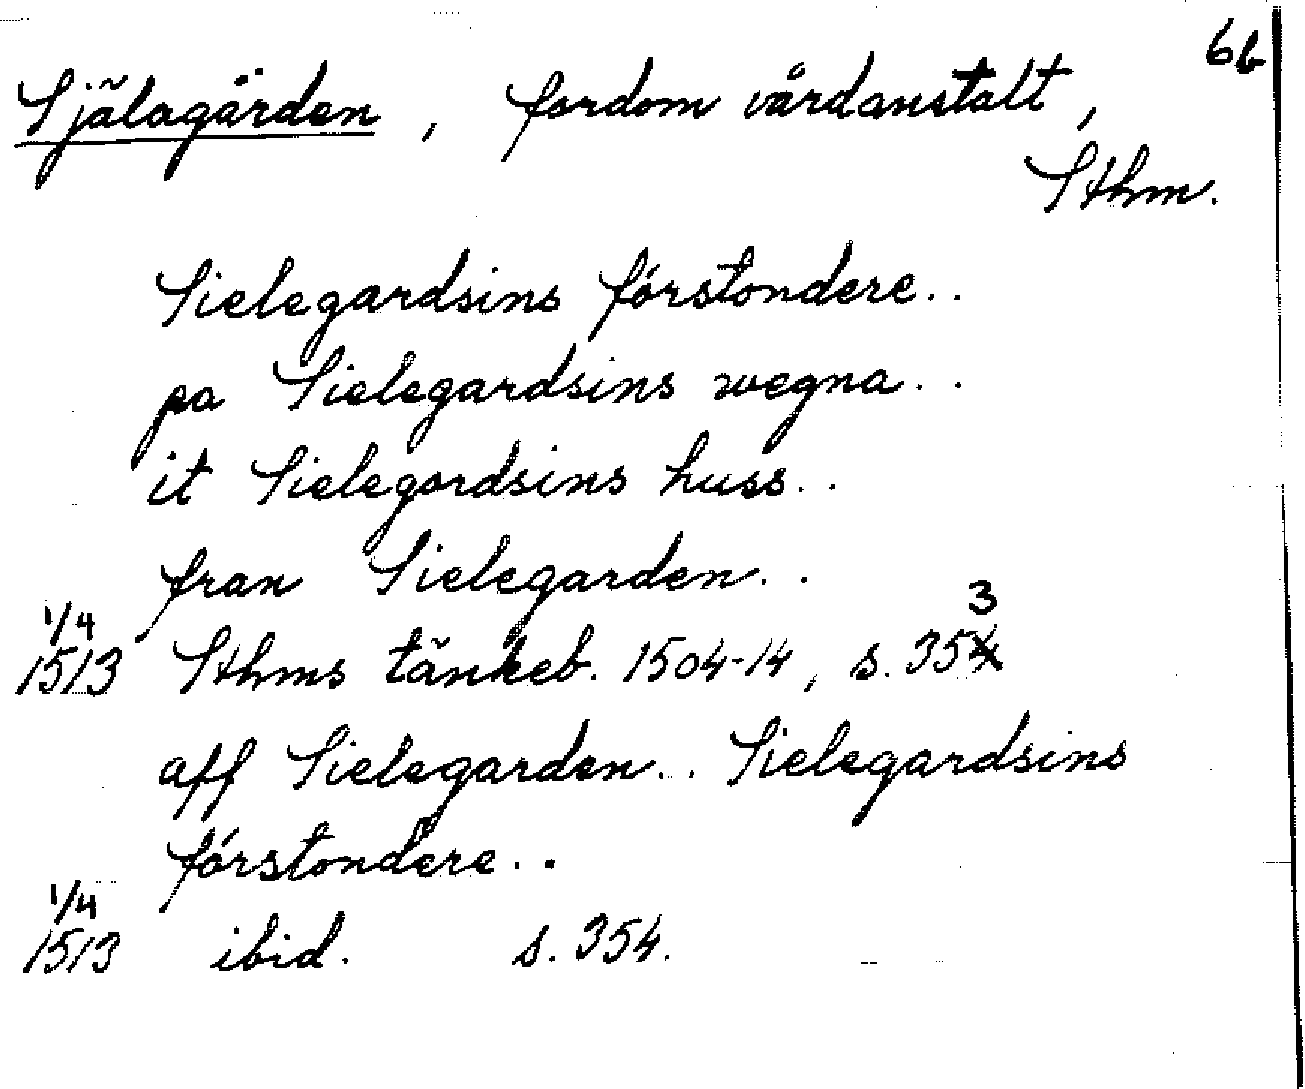 6b
Själagården, fordom vårdanstalt,
Sthm.
Sielegardsins fórstondere..
pa Sielegardsins wegna..
it Sielegordsins huss..
fran Sielegarden..
1/4 3
1513 Sthms tänkeb. 1504-14, s. 354
aff Sielegarden.. Sielegardsins
fórstondere..
1/4
1513 ibid. s. 354.